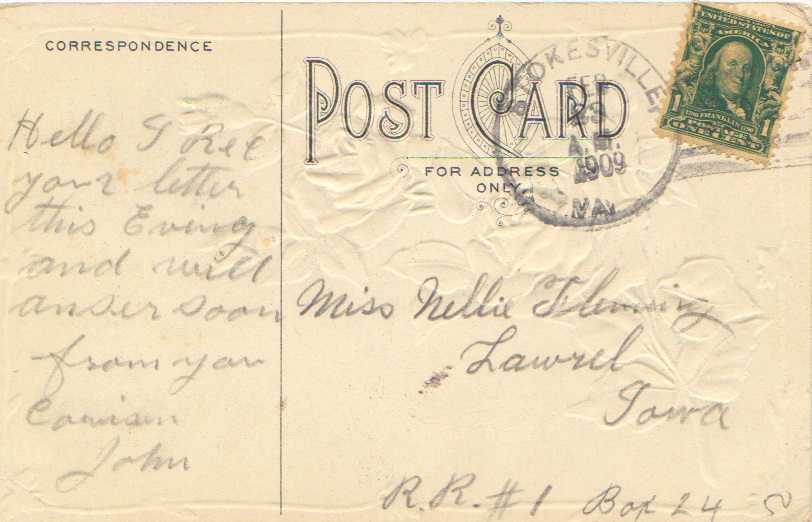 CORRESPONDENCE
POST CARD
FOR ADDRESS
ONLY
STOKESVILLE,
FEB
A.M.
1909
VA.
UNITED STATES OF
AMERICA
1706 FRANKLIN 1790
POSTAGE
1 ONE CENT 1
Hello I Rec
your letter
this Eving
and will
anser soon
from you
Cousin
John
Miss Nellie Fleming
Lawrel
Iowa
R.R. #1 Box 24